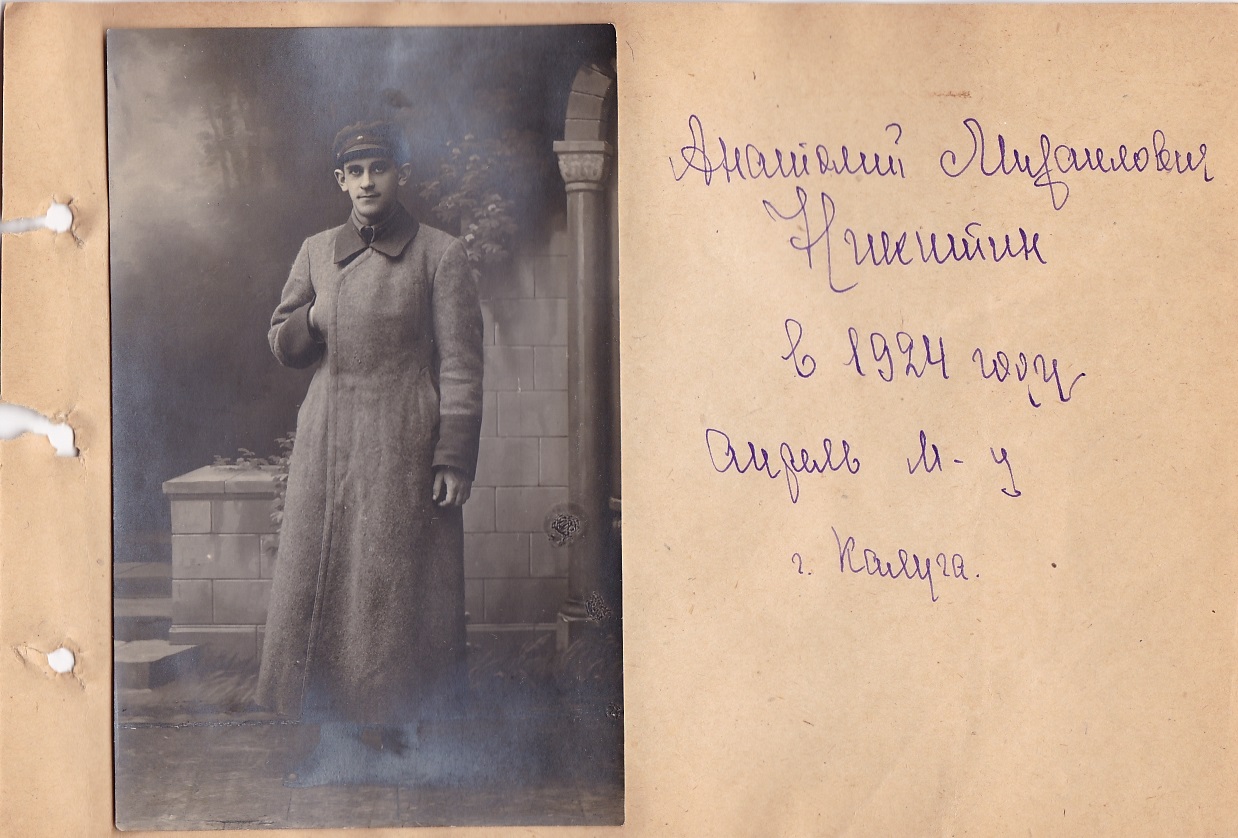 Анатолий Михаилович
Никитин
в 1924 году
апрель м-ц
г. Калуга.